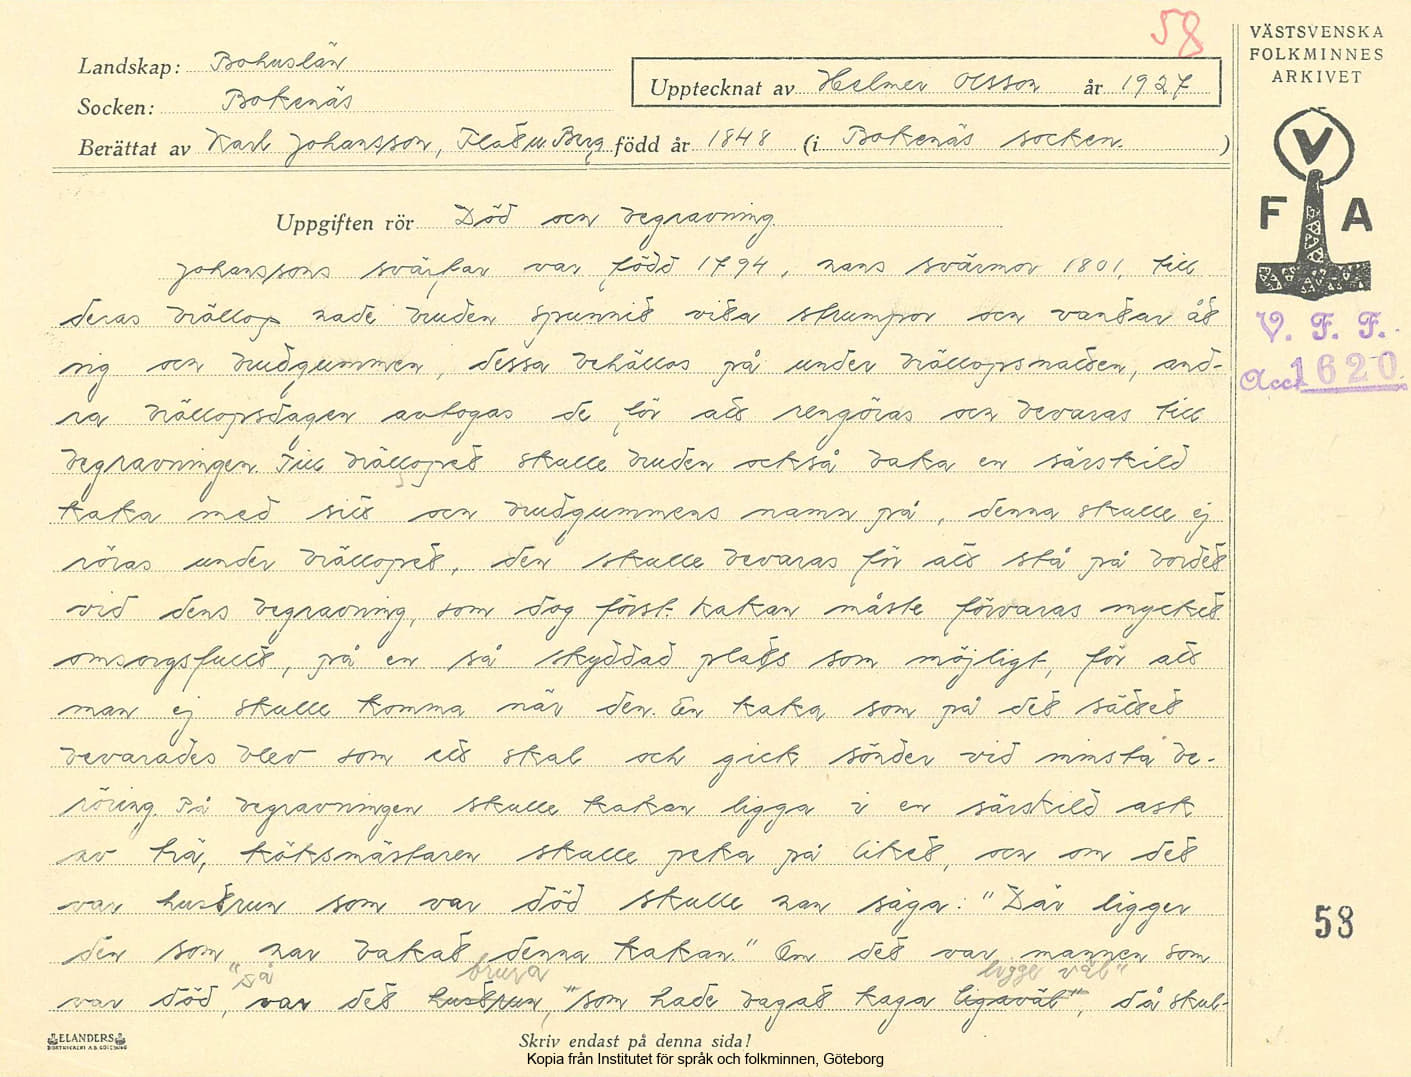 58
VÄSTSVENSKA
FOLKMINNES
ARKIVET
Landskap: Bohuslän
Socken: Bokenäs
Upptecknat av Helmer Olsson år 1927
Berättat av Karl Johansson, Berg född år 1848 (i Bokenäs socken. )
V
F A
V. F. F.
Acc. 1620
Uppgiften rör Död och begravning.
Johanssons svärfar var född 1794, hans svärmor 1801, till
deras bröllop hade bruden spunnit vita strumpor och vantar åt
sig och brudgummen, dessa behöllos på under bröllopsnatten, and-
ra bröllopsdagen avtogas de för att rengöras och bevaras till
begravningen. Till bröllopet skulle bruden också baka en särskild
kaka med sitt och brudgummens namn på, denna skulle ej
röras under bröllopet, den skulle bevaras för att stå på bordet
vid dens begravning, som dog först. Kakan måste förvaras mycket
omsorgsfullt, på en så skyddad plats som möjligt, för att
man ej skulle komma när den. En kaka som på det sättet
bevarades blev som ett skal och gick sönder vid minsta be-
röring. På begravningen skulle kakan ligga i en särskild ask
av trä, köksmästaren skulle peka på liket, och om det
var hustrun som var död skulle han säga: "Där ligger
den som har bakat denna kakan." Om det var mannen som
"så brura ligge väl"
var död, var det hustrun, "som hade bagat kaga ligaväl", då skul-
58
ELANDERS
BOKTRYCKERI A.B. GÖTEBORG
Skriv endast på denna sida!
Kopia från Institutet för språk och folkminnen, Göteborg